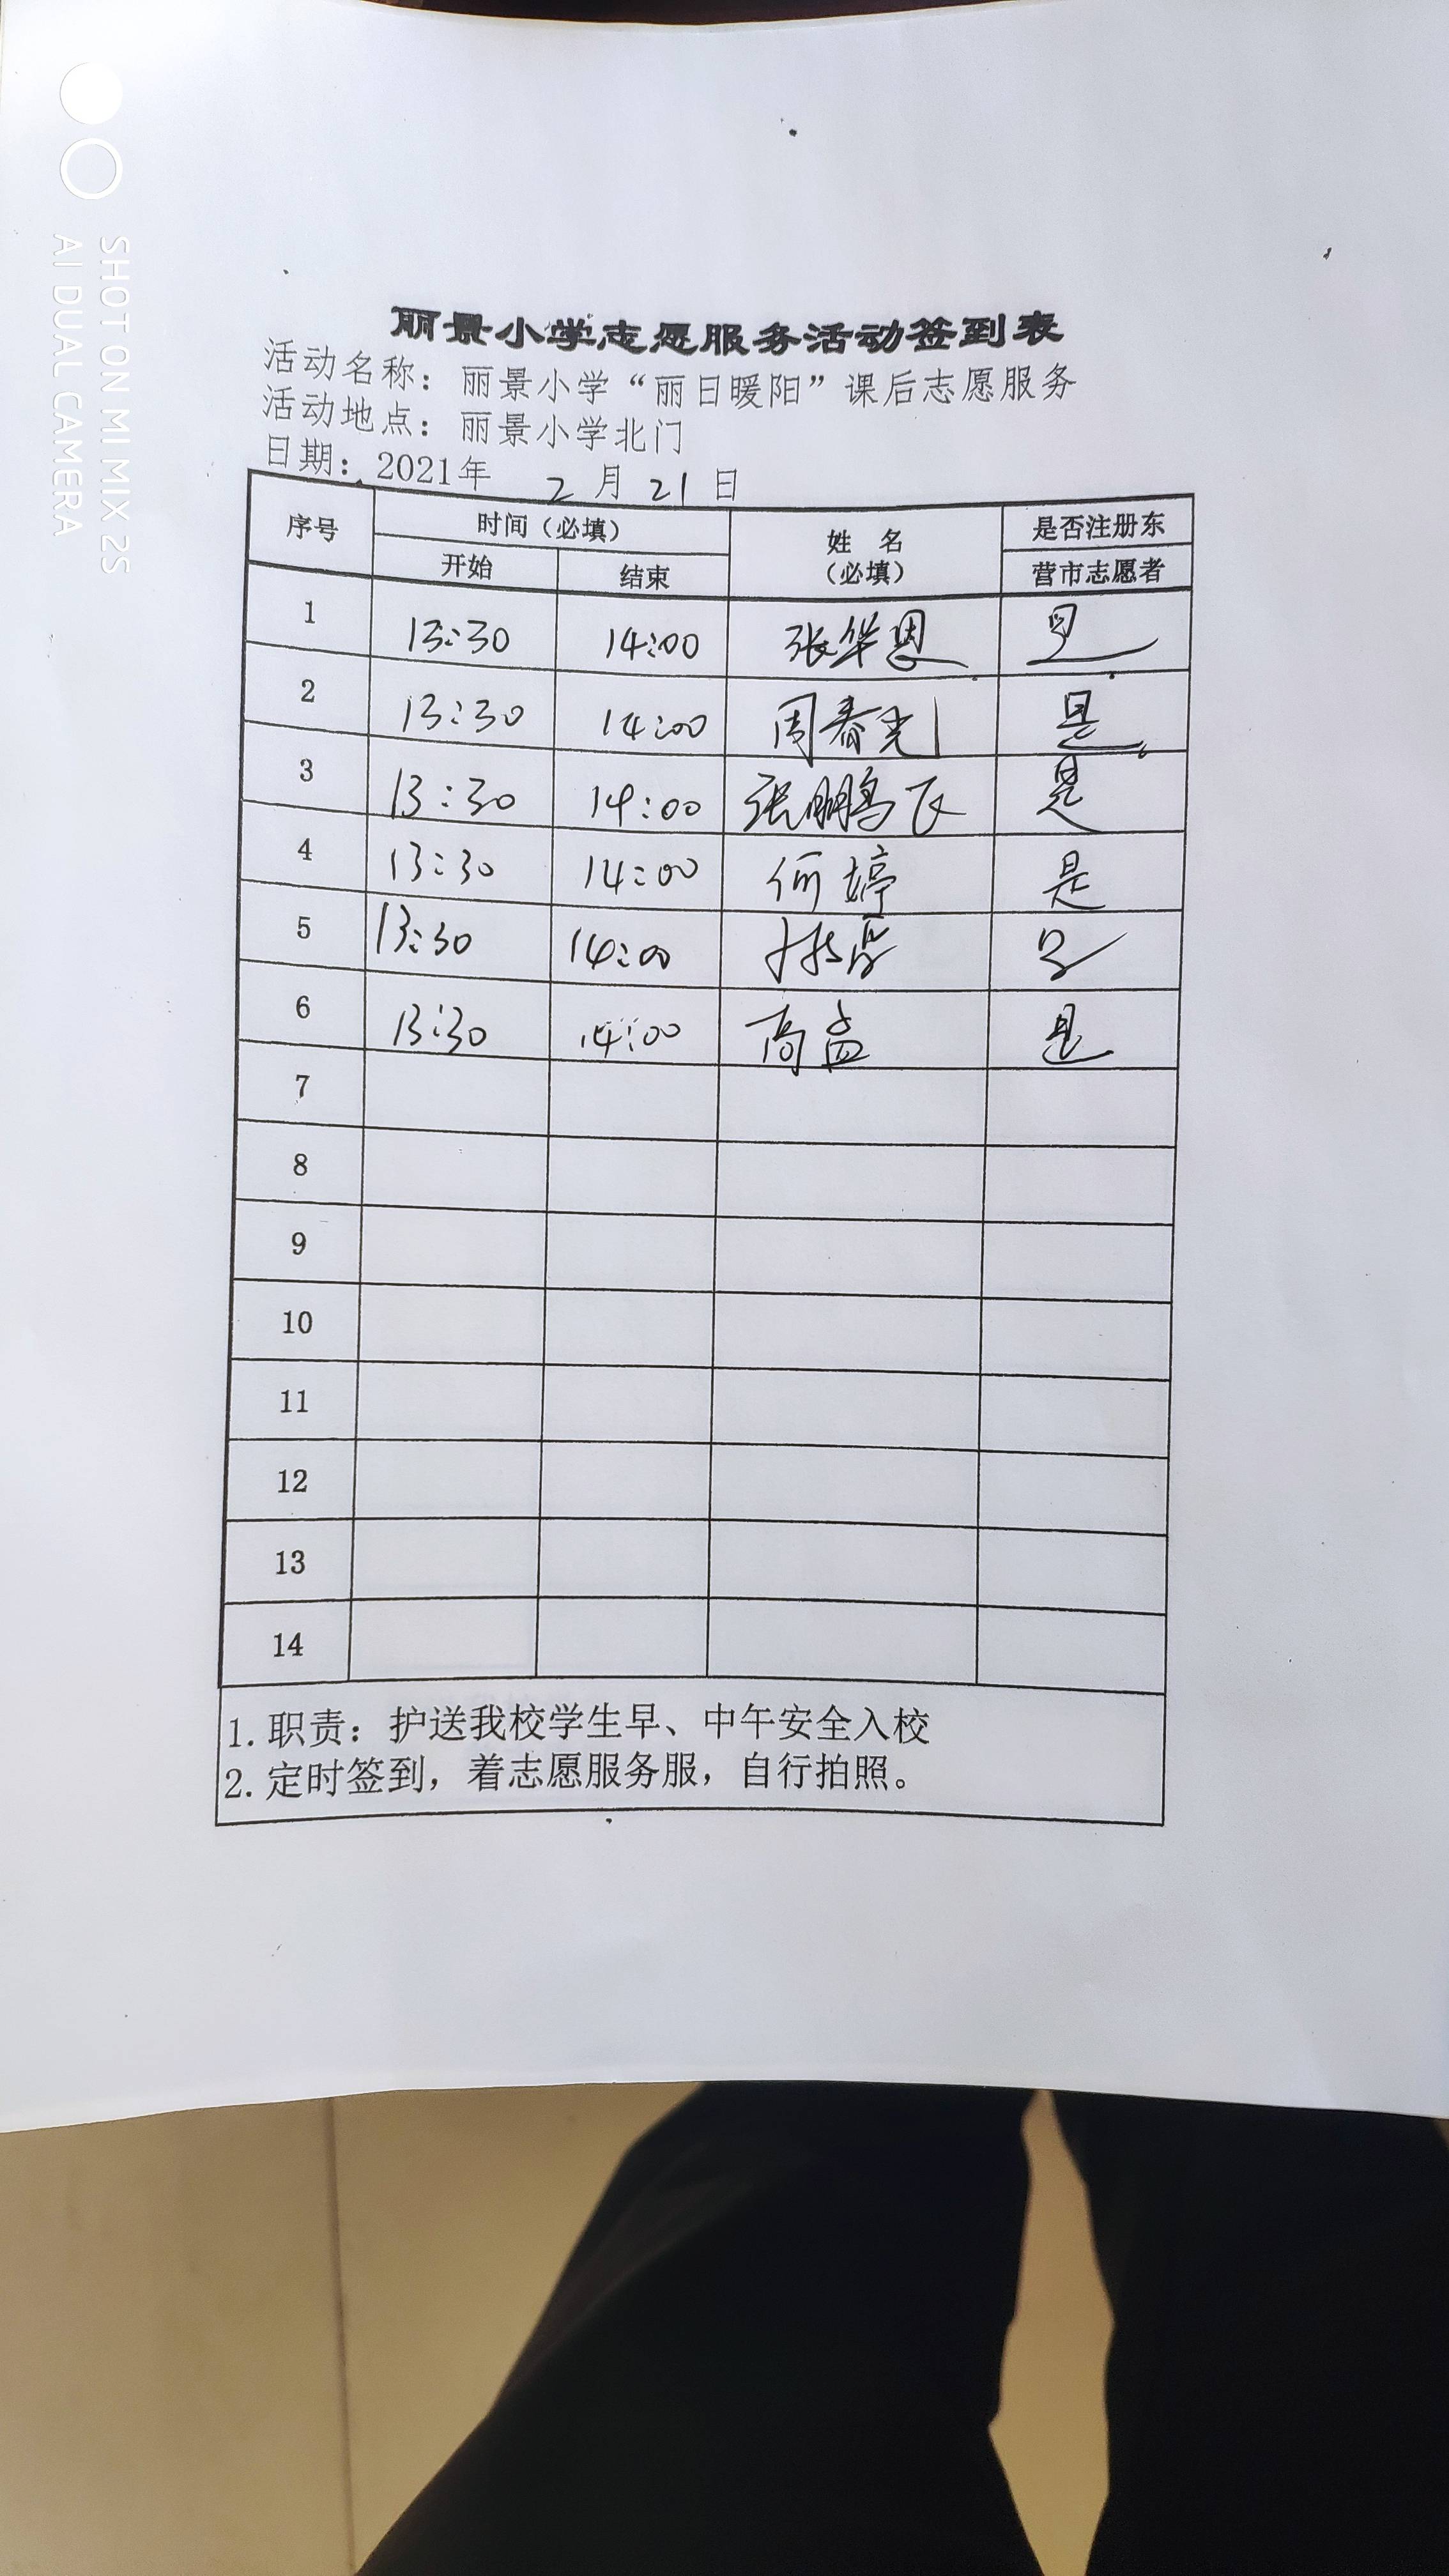 丽景小学志愿服务活动签到表
活动名称：丽景小学“丽日暖阳”课后志愿服务
活动地点：丽景小学北门
日期：2021年 2 月 21 日
序号 时间（必填） 姓 名（必填） 是否注册东营市志愿者
开始 结束
1 13:30 14:00 张华恩 是
2 13:30 14:00 周春光 是
3 13:30 14:00 张鹏飞 是
4 13:30 14:00 何婷 是
5 13:30 14:00 是
6 13:30 14:00 高孟 是
7
8
9
10
11
12
13
14
1.职责：护送我校学生早、中午安全入校
2.定时签到，着志愿服务服，自行拍照。
SHOT ON MI MIX 2S
AI DUAL CAMERA